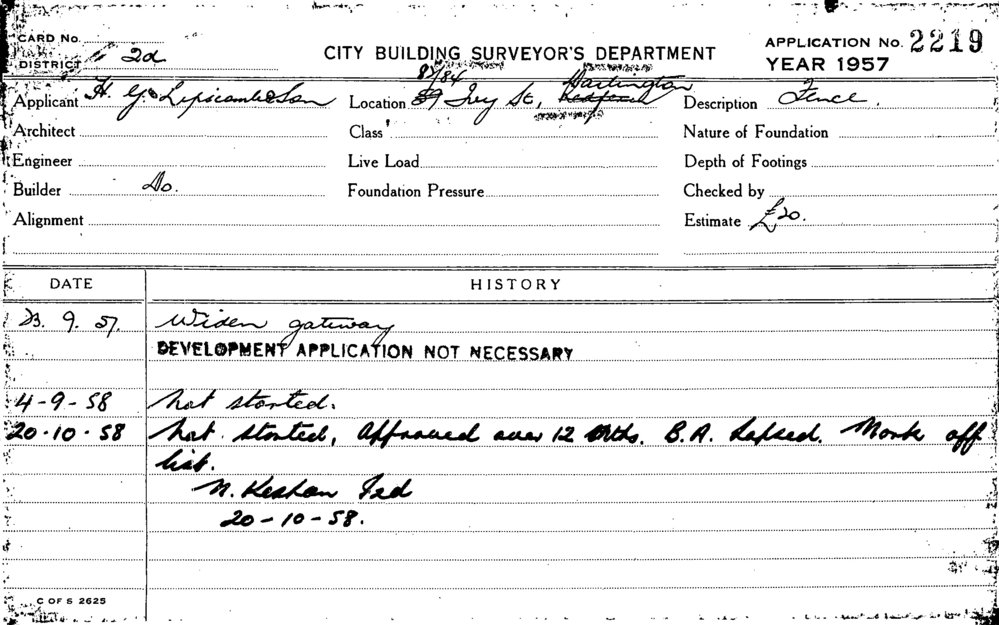 CARD No.
DISTRICT 2d
CITY BUILDING SURVEYOR'S DEPARTMENT
APPLICATION No. 2219
YEAR 1957
Applicant H. G. Lipscombe & Son
Location 82/84 Ivy St, Darlington
Description Fence.
Architect
Class
Nature of Foundation
Engineer
Live Load
Depth of Footings
Builder Do.
Foundation Pressure
Checked by
Alignment
Estimate £20.
DATE
HISTORY
23. 9. 57. Widen gateway
DEVELOPMENT APPLICATION NOT NECESSARY
4-9-58 Not started.
20.10.58 Not started, Approved over 12 Mths. B.A. Lapsed. Mark off
list.
20-10-58.
C OF S 2625